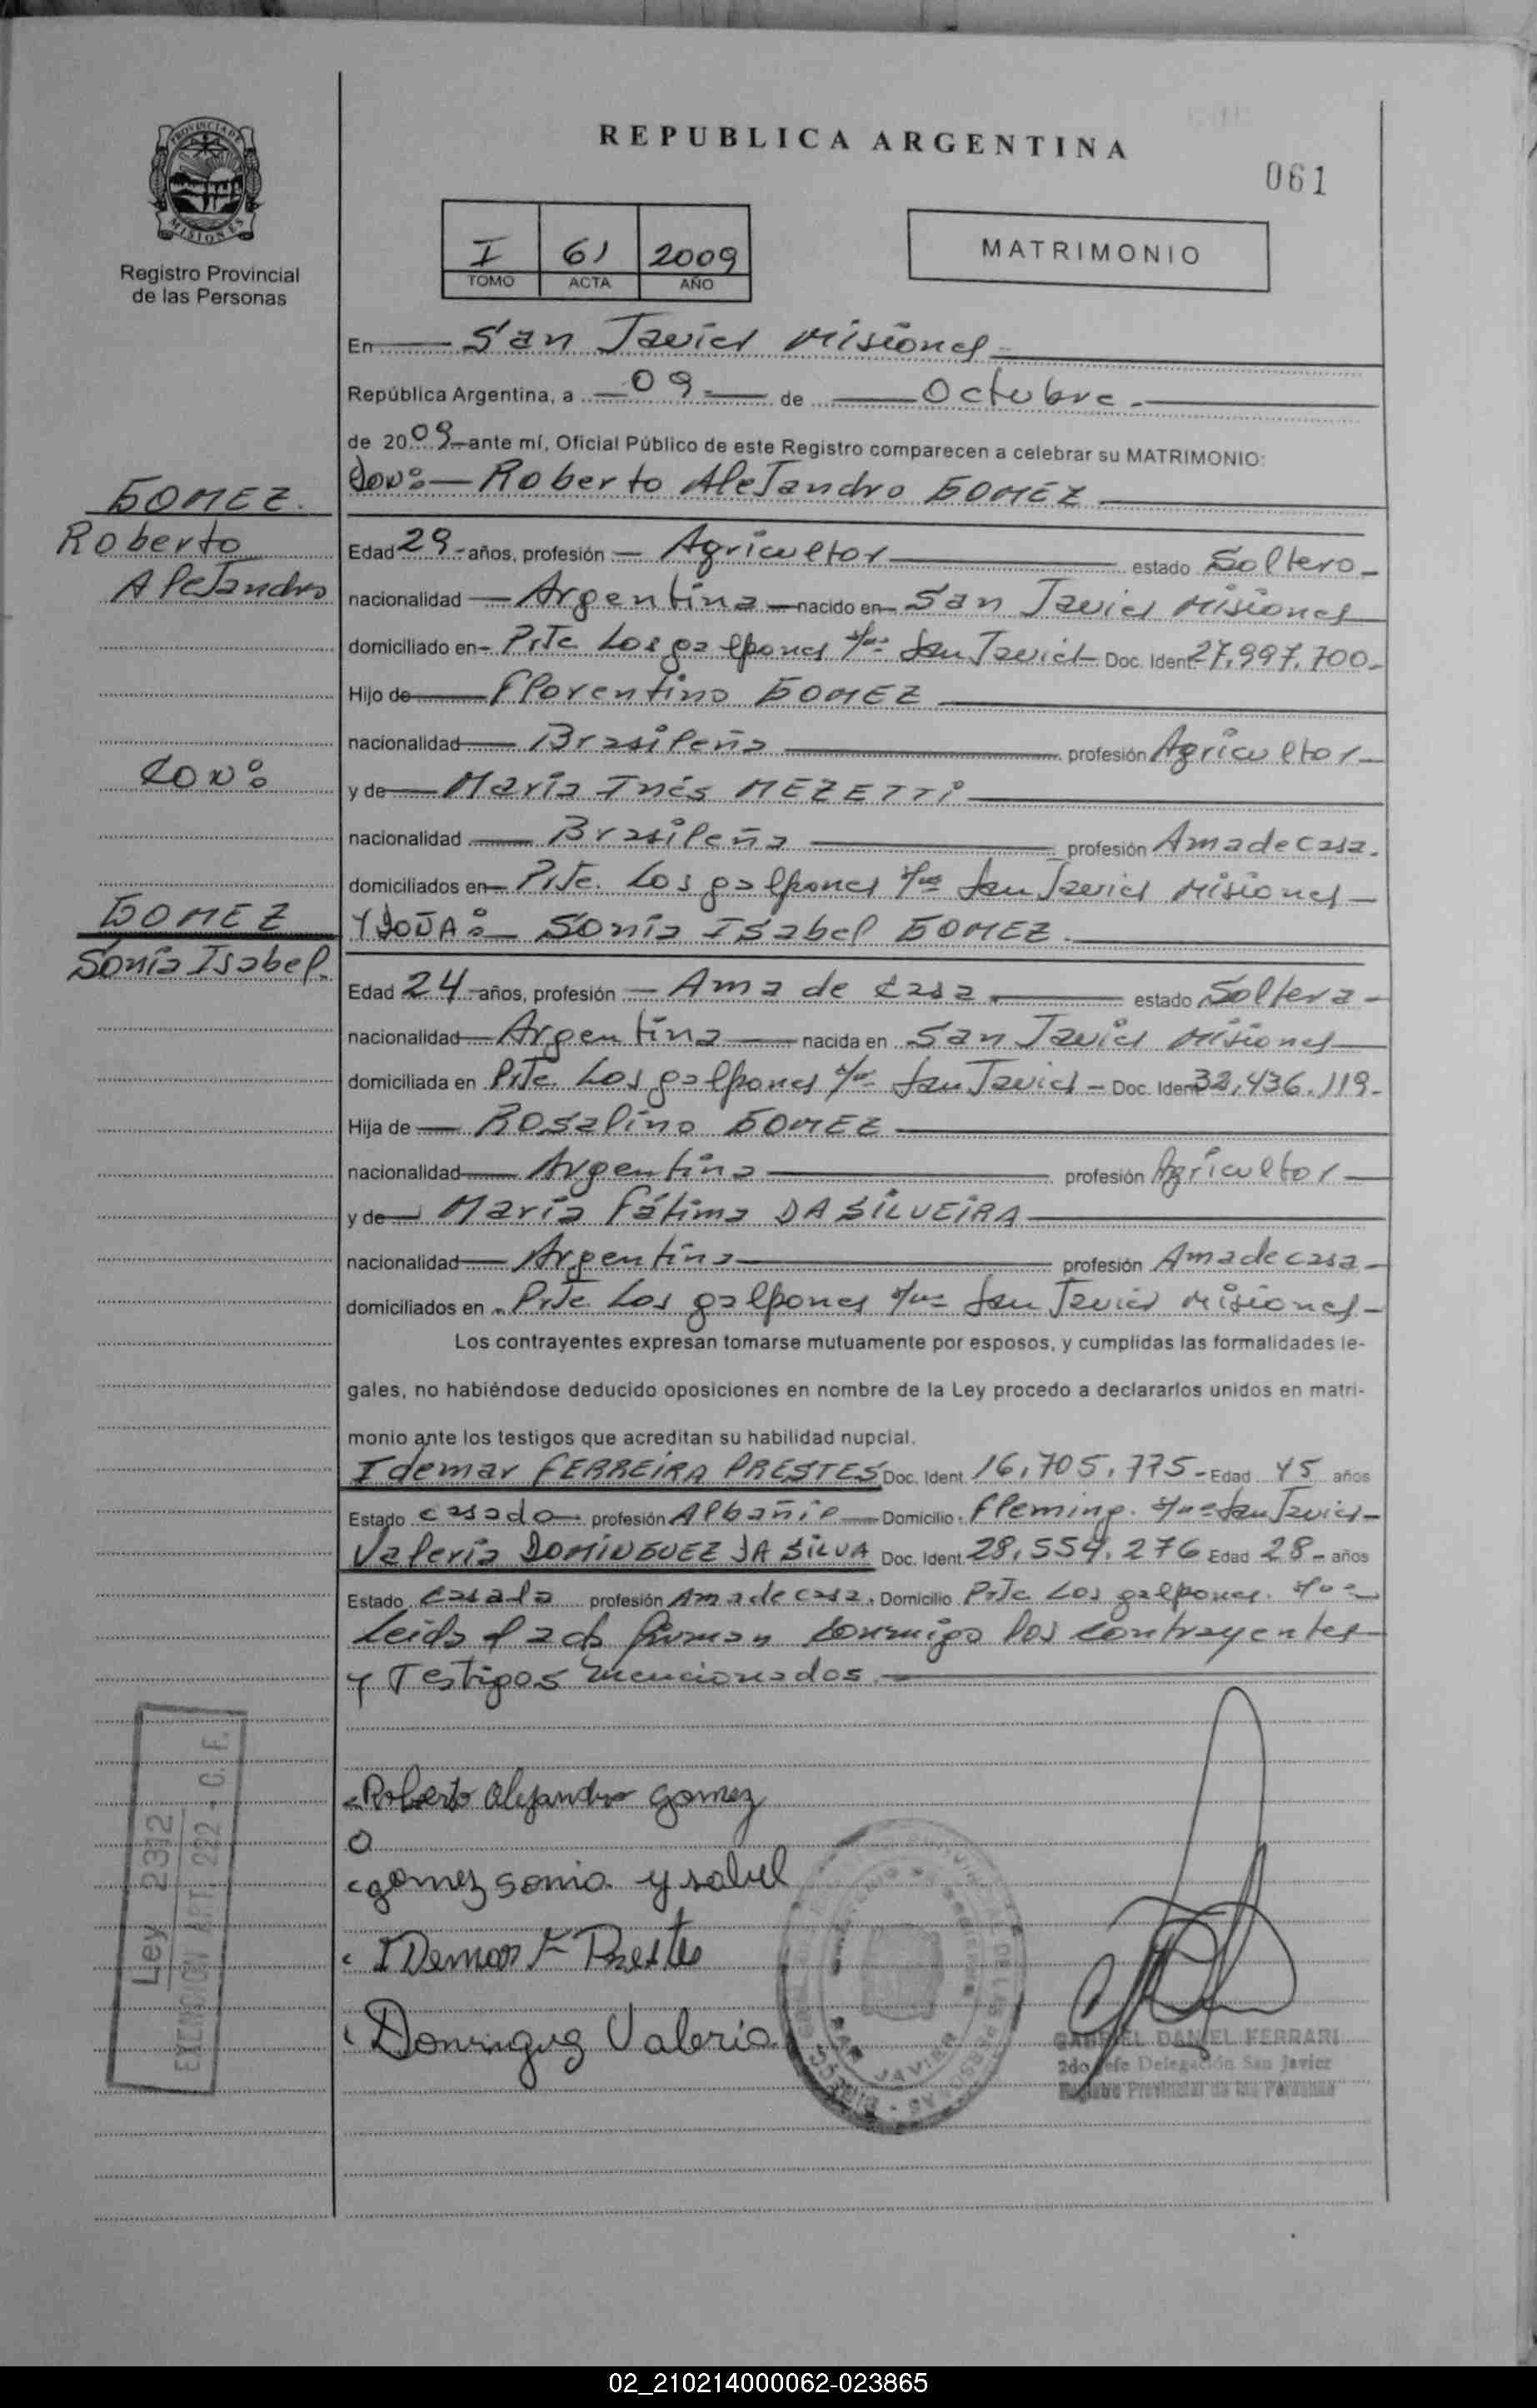 REPUBLICA ARGENTINA
061
PROVINCIA DE MISIONES
Registro Provincial
de las Personas
I 61 2009
TOMO ACTA AÑO
MATRIMONIO
En San Javier Misiones
República Argentina, a 09 de Octubre
de 2009 ante mí, Oficial Público de este Registro comparecen a celebrar su MATRIMONIO:
GOMEZ Don: Roberto Alejandro GOMEZ
Roberto Edad 29 años, profesión Agricultor estado Soltero
Alejandro nacionalidad Argentina nacido en San Javier Misiones
domiciliado en Pje Los galpones San Javier Doc. Ident. 27.997.700
Hijo de Florentino GOMEZ
nacionalidad Brasileña profesión Agricultor
con: y de María Inés MEZETTI
nacionalidad Brasileña profesión Ama de casa.
domiciliados en Pje. Los galpones San Javier Misiones
GOMEZ Y DOÑA: Sonia Isabel GOMEZ
Sonia Isabel Edad 24 años, profesión Ama de casa estado Soltera
nacionalidad Argentina nacida en San Javier Misiones
domiciliada en Pje Los galpones San Javier Doc. Ident. 436.119
Hija de Rosalino GOMEZ
nacionalidad Argentina profesión Agricultor
y de María Fátima DA SILVEIRA
nacionalidad Argentina profesión Ama de casa
domiciliados en Pje Los galpones San Javier Misiones
Los contrayentes expresan tomarse mutuamente por esposos, y cumplidas las formalidades le-
gales, no habiéndose deducido oposiciones en nombre de la Ley procedo a declararlos unidos en matri-
monio ante los testigos que acreditan su habilidad nupcial.
Idemar FERREIRA PRESTES Doc. Ident. 16.705.775 Edad 45 años
Estado casado profesión Albañil Domicilio Fleming. San Javier
Valeria DOMINGUEZ DA SILVA Doc. Ident. 28.554.276 Edad 28 años
Estado Casada profesión Ama de casa. Domicilio Pje Los galpones.
Leida el acta firman conmigo los contrayentes
y Testigos mencionados.
Roberto Alejandro gomez
gomez sonia ysabel
IDemar F Prestes
Dominguez Valeria
Ley 2312
EXENCION ART. 222 - C.F.
SAN JAVIER
GABRIEL DANIEL FERRARI
2do Jefe Delegación San Javier
Registro Provincial de las Personas
02_210214000062-023865